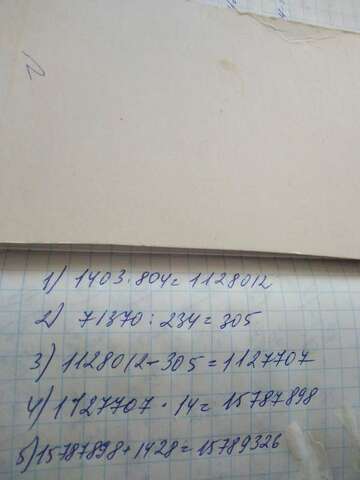 1) 1403·804=1128012
2) 71370:234=305
3) 1128012-305=1127707
4) 1127707·14=15787898
5) 15787898+1428=15789326